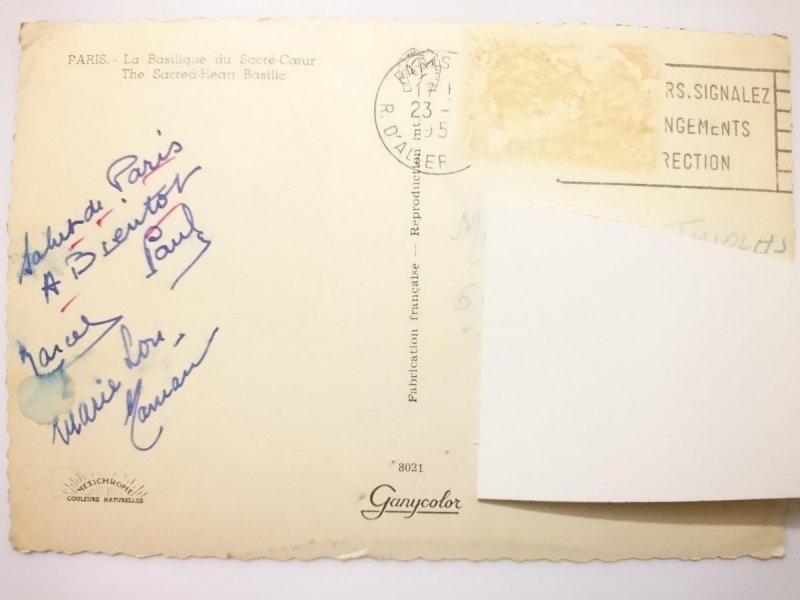 PARIS. - La Basilique du Sacré-Cœur
The Sacred-Heart Basilic
17
23 -
R. D'AL
ER
RS. SIGNALEZ
NGEMENTS
RECTION
Salut de Paris
A Bientot
Paul
Marcel
Marie Lou -
Maman
Fabrication française — Reproduction int
THIOLAS
8021
Ganycolor
MEXICHROME
COULEURS NATURELLES